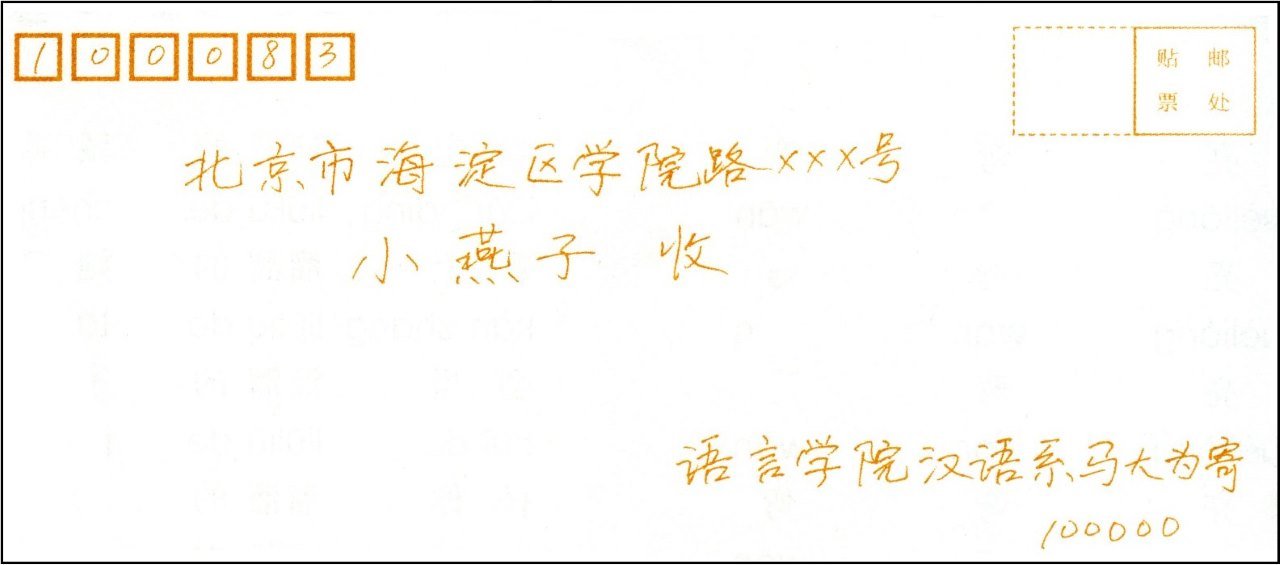 100083
贴邮
票处
北京市海淀区学院路×××号
小燕子 收
语言学院汉语系马大为寄
100000